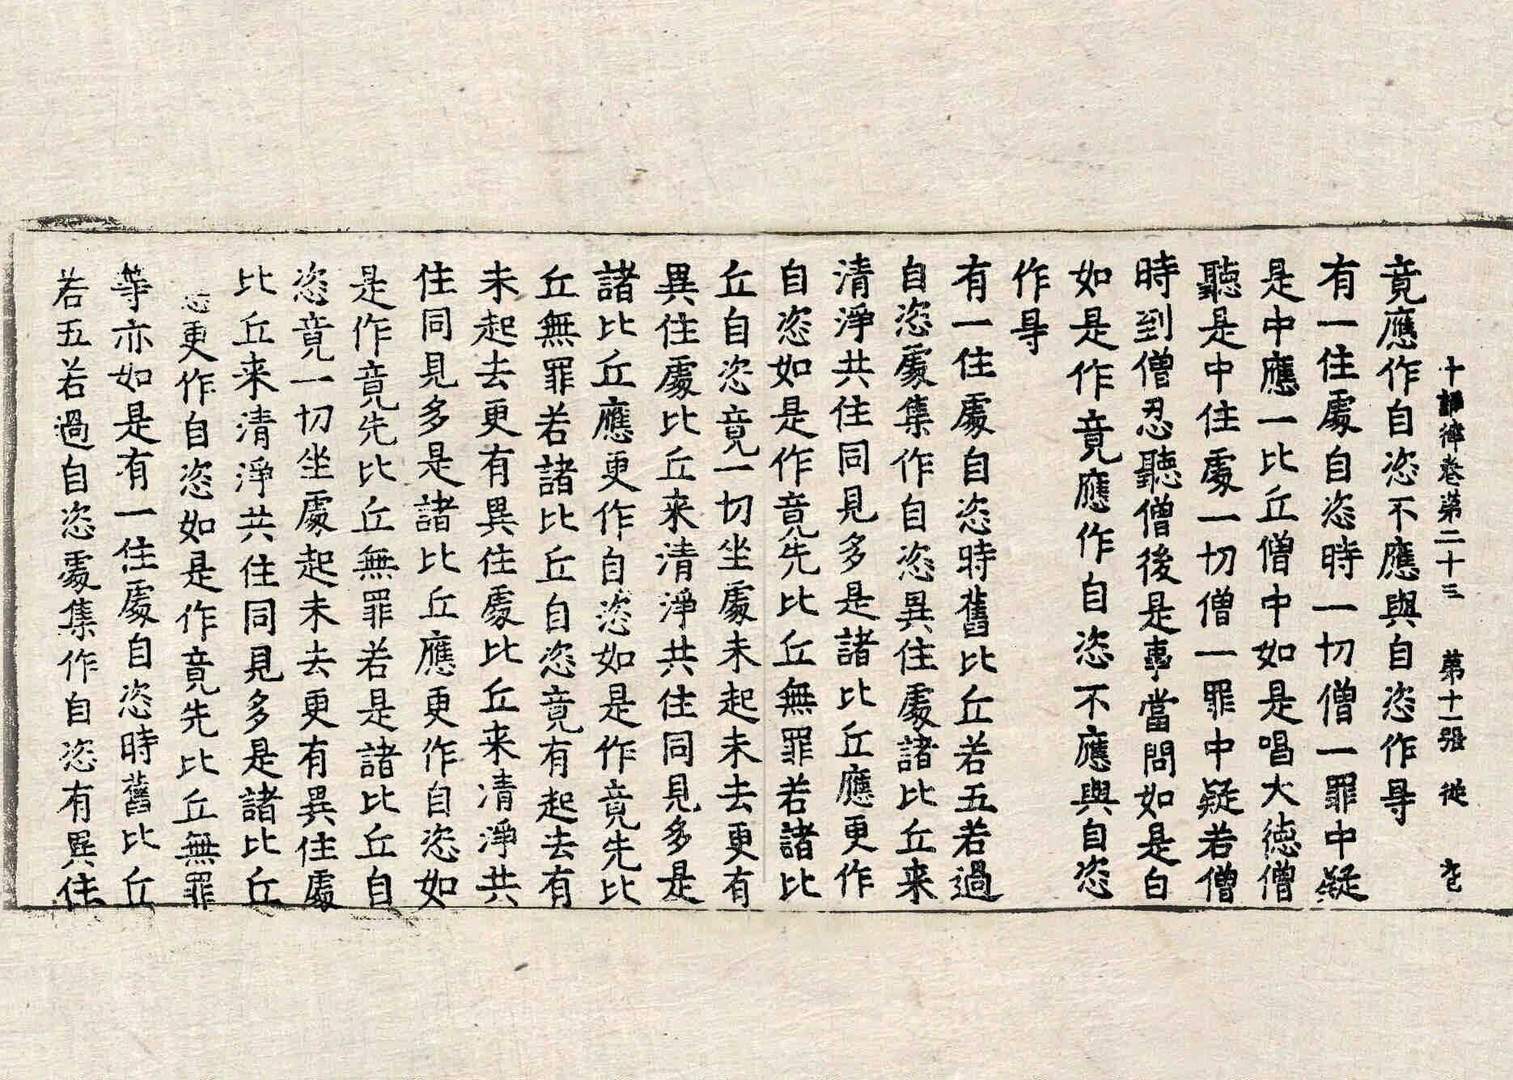 十誦律卷第二十三 第十一張 從
竟應作自恣不應與自恣作㝵
有一住處自恣時一切僧一罪中疑
是中應一比丘僧中如是唱大德僧
聽是中住處一切僧一罪中疑若僧
時到僧忍聽僧後是事當問如是白
如是作竟應作自恣不應與自恣
作㝵
有一住處自恣時舊比丘若五若過
自恣處集作自恣異住處諸比丘来
清淨共住同見多是諸比丘應更作
自恣如是作竟先比丘無罪若諸比
丘自恣竟一切坐處未起未去更有
異住處比丘来清淨共住同見多是
諸比丘應更作自恣如是作竟先比
丘無罪若諸比丘自恣竟有起去有
未起去更有異住處比丘来清淨共
住同見多是諸比丘應更作自恣如
是作竟先比丘無罪若是諸比丘自
恣竟一切坐處起未去更有異住處
比丘来清淨共住同見多是諸比丘
更作自恣如是作竟先比丘無罪
等亦如是有一住處自恣時舊比丘
若五若過自恣處集作自恣有異住